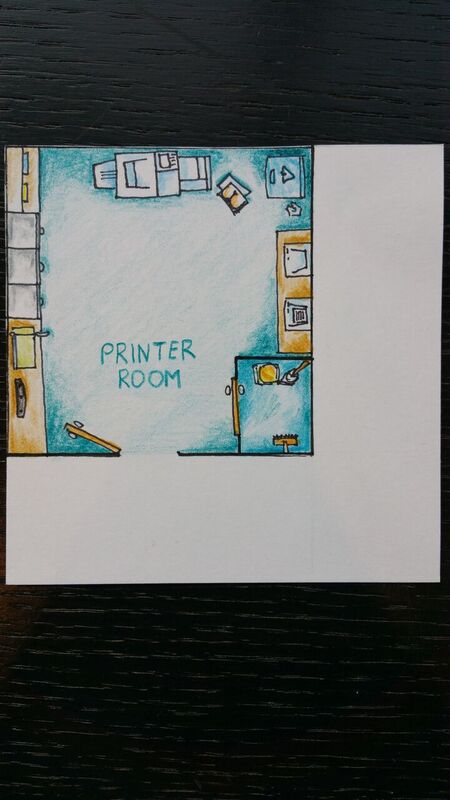 PRINTER
ROOM